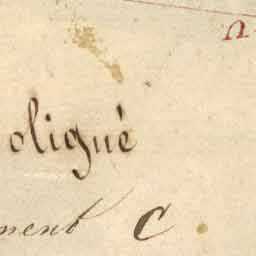 oligué
ment C